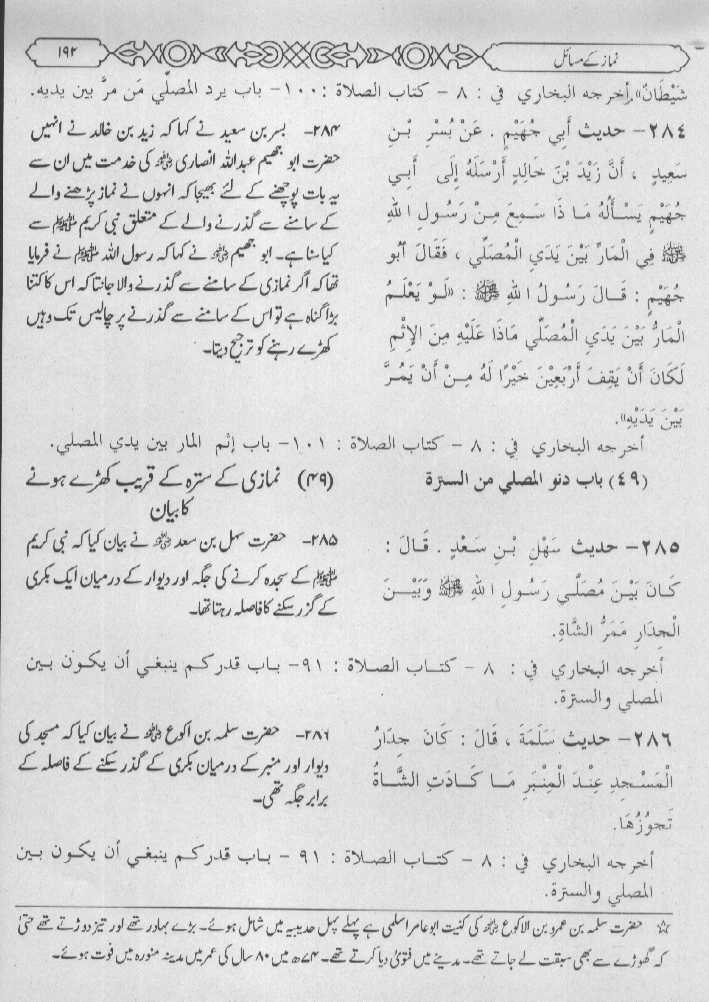 نماز کے مسائل
۱۹۲
شَيْطَانٌ». أخرجه البخاري في : ٨ – كتاب الصلاة : ١٠٠– باب يرد المصلّي مَن مرَّ بين يديه.
٢٨٤– حديث أَبِي جُهَيْمٍ . عَنْ بُسْرِ بْنِ
سَعِيدٍ ، أَنَّ زَيْدَ بْنَ خَالِدٍ أَرْسَلَهُ إِلَى أَبِي
جُهَيْمٍ يَسْأَلُهُ مَا ذَا سَمِعَ مِنْ رَسُولِ اللهِ
ﷺ فِي الْمَارِّ بَيْنَ يَدَيِ الْمُصَلِّي ، فَقَالَ أَبُو
جُهَيْمٍ : قَالَ رَسُولُ اللهِ ﷺ : «لَوْ يَعْلَمُ
الْمَارُّ بَيْنَ يَدَيِ الْمُصَلِّي مَاذَا عَلَيْهِ مِنَ الإِثْمِ
لَكَانَ أَنْ يَقِفَ أَرْبَعِينَ خَيْرًا لَهُ مِنْ أَنْ يَمُرَّ
بَيْنَ يَدَيْهِ».
۲۸۴– بسر بن سعید نے کہا کہ زید بن خالد نے انہیں
حضرت ابو جھیم عبداللہ انصاری ؓ کی خدمت میں ان سے
یہ بات پوچھنے کے لئے بھیجا کہ انہوں نے نماز پڑھنے والے
کے سامنے سے گذرنے والے کے متعلق نبی کریم ﷺ سے
کیا سنا ہے۔ ابو جھیم ؓ نے کہا کہ رسول اللہ ﷺ نے فرمایا
تھا کہ اگر نمازی کے سامنے سے گذرنے والا جانتا کہ اس کا کتنا
بڑا گناہ ہے تو اس کے سامنے سے گذرنے پر چالیس تک وہیں
کھڑے رہنے کو ترجیح دیتا۔
أخرجه البخاري في : ٨ – كتاب الصلاة : ١٠١– باب إثم المار بين يدي المصلي.
(٤٩) باب دنو المصلي من السترة
(۴۹) نمازی کے سترہ کے قریب کھڑے ہونے
کا بیان
٢٨٥– حديث سَهْلِ بْنِ سَعْدٍ . قَالَ :
كَانَ بَيْنَ مُصَلَّى رَسُولِ اللهِ ﷺ وَبَيْنَ
الْجِدَارِ مَمَرُّ الشَّاةِ.
۲۸۵– حضرت سہل بن سعد ؓ نے بیان کیا کہ نبی کریم
ﷺ کے سجدہ کرنے کی جگہ اور دیوار کے درمیان ایک بکری
کے گزر سکنے کا فاصلہ رہتا تھا۔
أخرجه البخاري في : ٨ – كتاب الصلاة : ٩١– باب قدركم ينبغي أن يكون بين
المصلي والسترة.
٢٨٦– حديث سَلَمَةَ ، قَالَ : كَانَ جِدَارُ
الْمَسْجِدِ عِنْدَ الْمِنْبَرِ مَا كَادَتِ الشَّاةُ
تَجُوزُهَا.
۲۸۶– حضرت سلمہ بن اکوع ؓ نے بیان کیا کہ مسجد کی
دیوار اور منبر کے درمیان بکری کے گذر سکنے کے فاصلہ کے
برابر جگہ تھی۔
أخرجه البخاري في : ٨ – كتاب الصلاة : ٩١ – باب قدركم ينبغي أن يكون بين
المصلي والسترة.
☆ حضرت سلمہ بن عمرو بن الاکوع ؓ کی کنیت ابو عامر اسلمی ہے پہلے پہل حدیبیہ میں شامل ہوئے۔ بڑے بہادر تھے اور تیز دوڑتے تھے حتیٰ
کہ گھوڑے سے بھی سبقت لے جاتے تھے۔ مدینے میں فتویٰ دیا کرتے تھے۔ ۷۴ھ میں ۸۰ سال کی عمر میں مدینہ منورہ میں فوت ہوئے۔